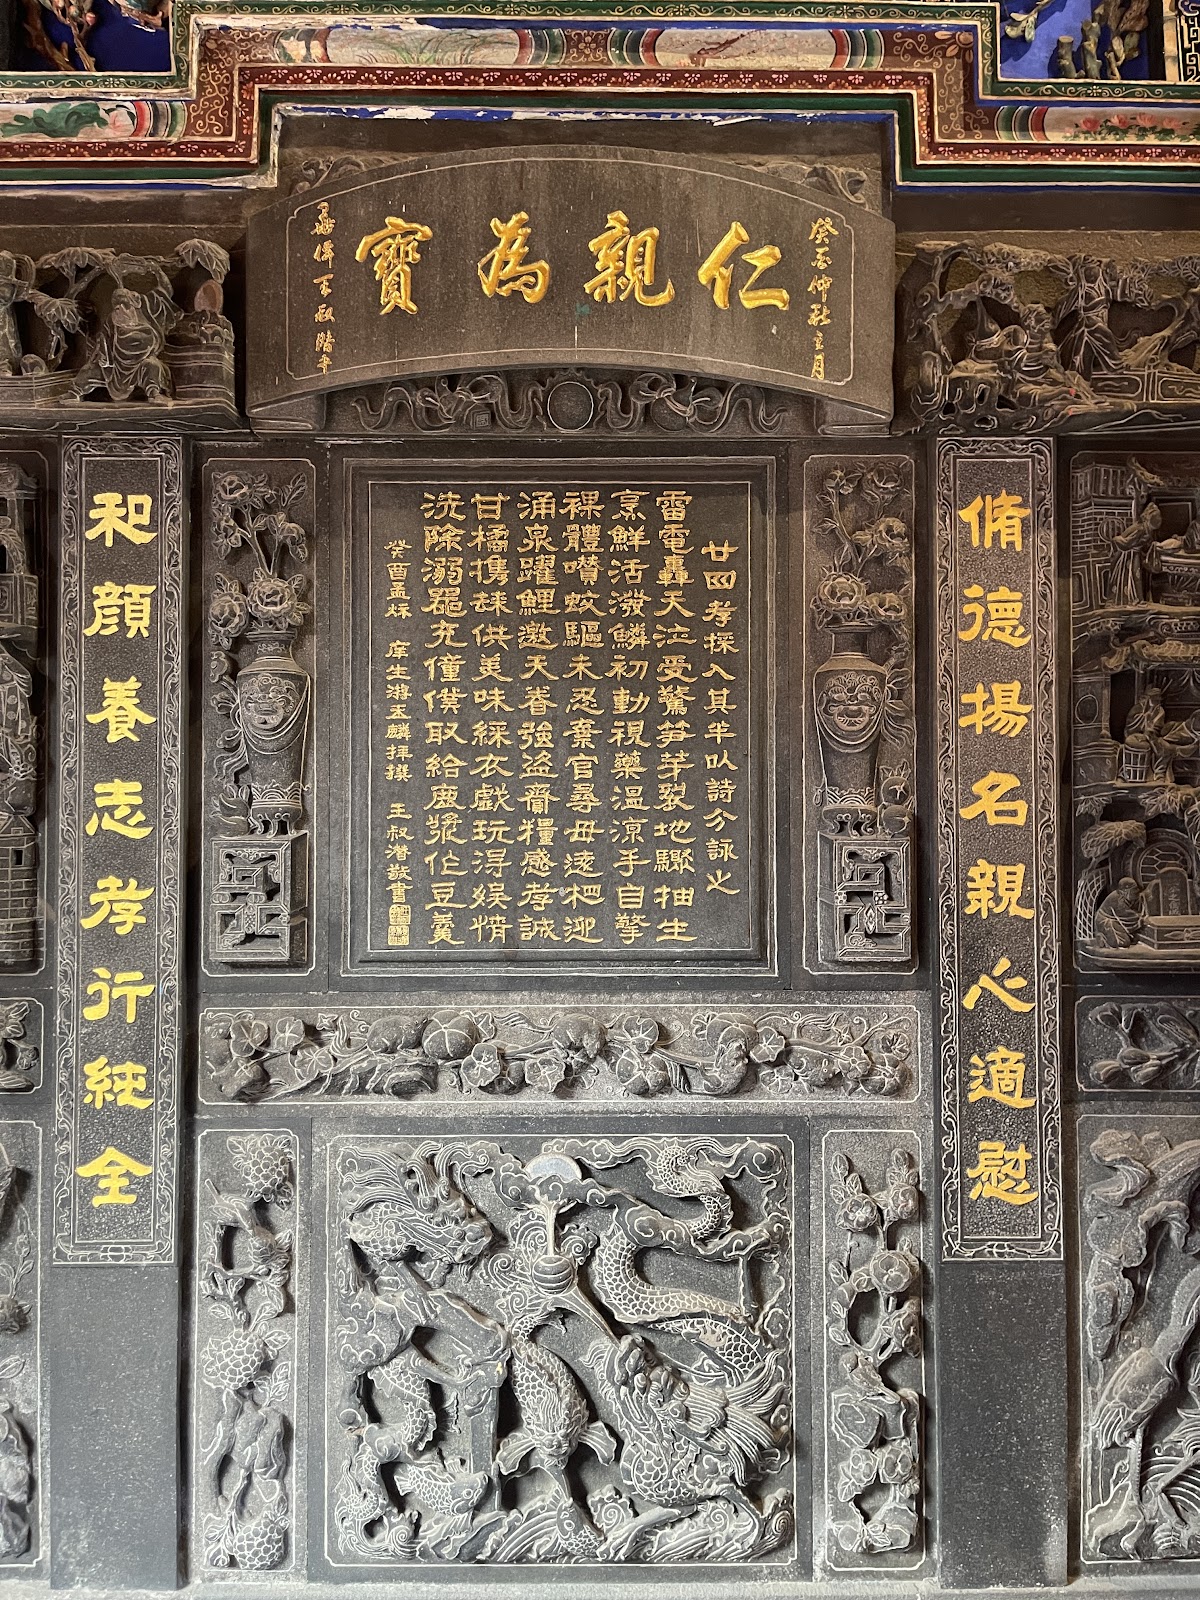 仁親為寶
脩德揚名親心適慰
廿四孝採入其半以詩分詠之
雷電轟天泣受驚笋芽裂地驟抽生
烹鮮活潑鱗初動視藥溫涼手自擎
裸體囋蚊驅未忍棄官尋母遠迎
涌泉躍鯉邀天眷強盜齎糧感孝誠
甘橘携供美味綵衣戲玩得娛情
洗除溺器充僮僕取給鹿漿作豆羹
癸酉孟秌 庠生游玉麟拜撰 王叔潛敬書
和顏養志孝行純全